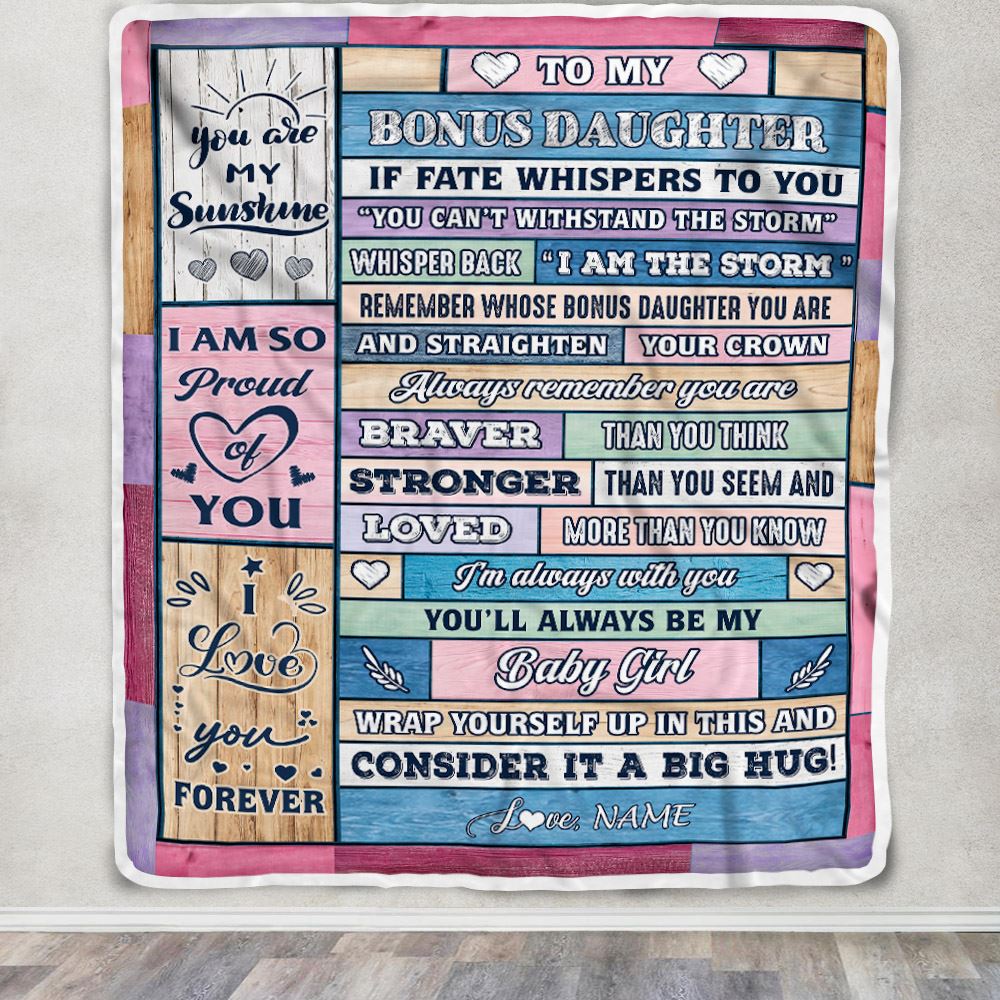 you are
MY
Sunshine
I AM SO
Proud
of
YOU
I
Love
you
FOREVER
TO MY
BONUS DAUGHTER
IF FATE WHISPERS TO YOU
“YOU CAN'T WITHSTAND THE STORM”
WHISPER BACK “I AM THE STORM”
REMEMBER WHOSE BONUS DAUGHTER YOU ARE
AND STRAIGHTEN YOUR CROWN
Always remember you are
BRAVER THAN YOU THINK
STRONGER THAN YOU SEEM AND
LOVED MORE THAN YOU KNOW
I'm always with you
YOU'LL ALWAYS BE MY
Baby Girl
WRAP YOURSELF UP IN THIS AND
CONSIDER IT A BIG HUG!
Love, NAME